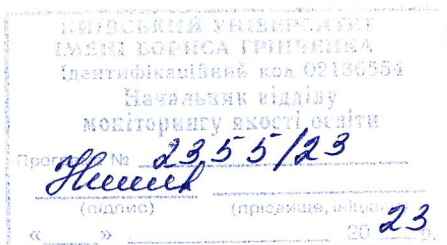 КИЇВСЬКИЙ УНІВЕРСИТЕТ
ІМЕНІ БОРИСА ГРІНЧЕНКА
Ідентифікаційний код 02136554
Начальник відділу
моніторингу якості освіти
№ 2355/23
(підпис) (прізвище,
« » 20 23 р